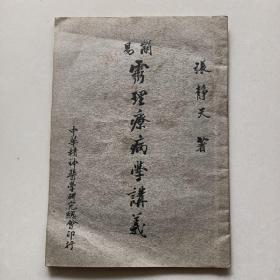 張靜天 著
簡易
靈理療病學講義
中華精神醫學研究總會印行